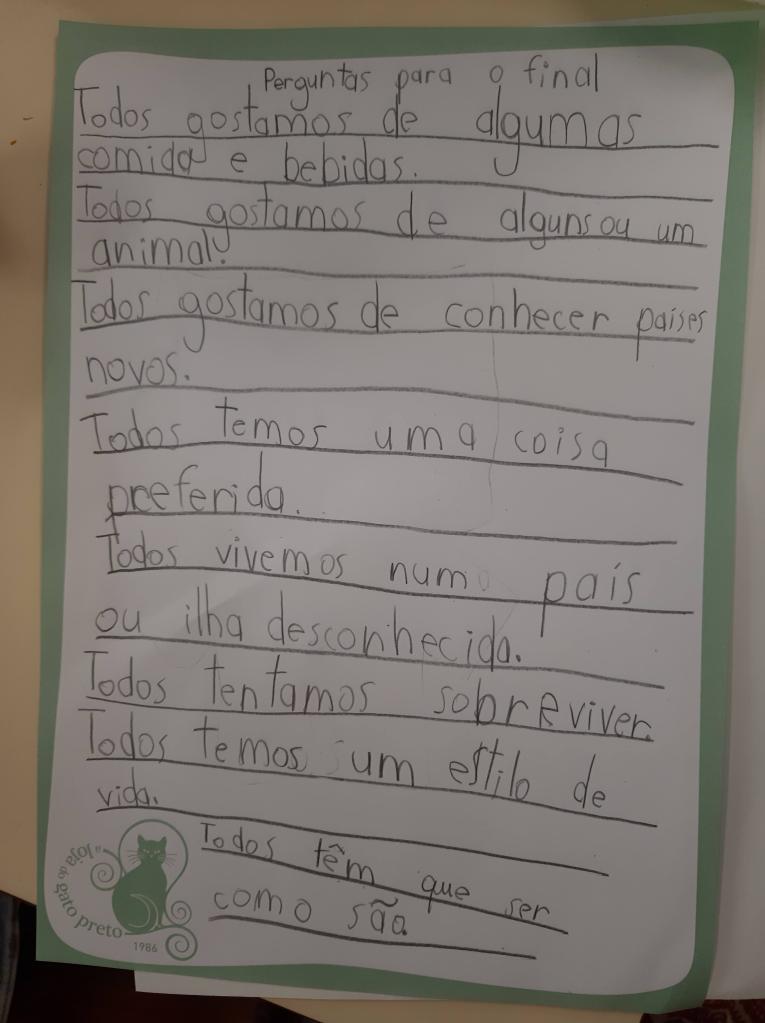 Perguntas para o final
Todos gostamos de algumas
comida e bebidas.
Todos gostamos de alguns ou um
animal!
Todos gostamos de conhecer paises
novos.
Todos temos uma coisa
preferida.
Todos vivemos num país
ou ilha desconhecida.
Todos tentamos sobreviver.
Todos temos um estilo de
vida.
Todos têm que ser
como são.
loja do gato preto
1986